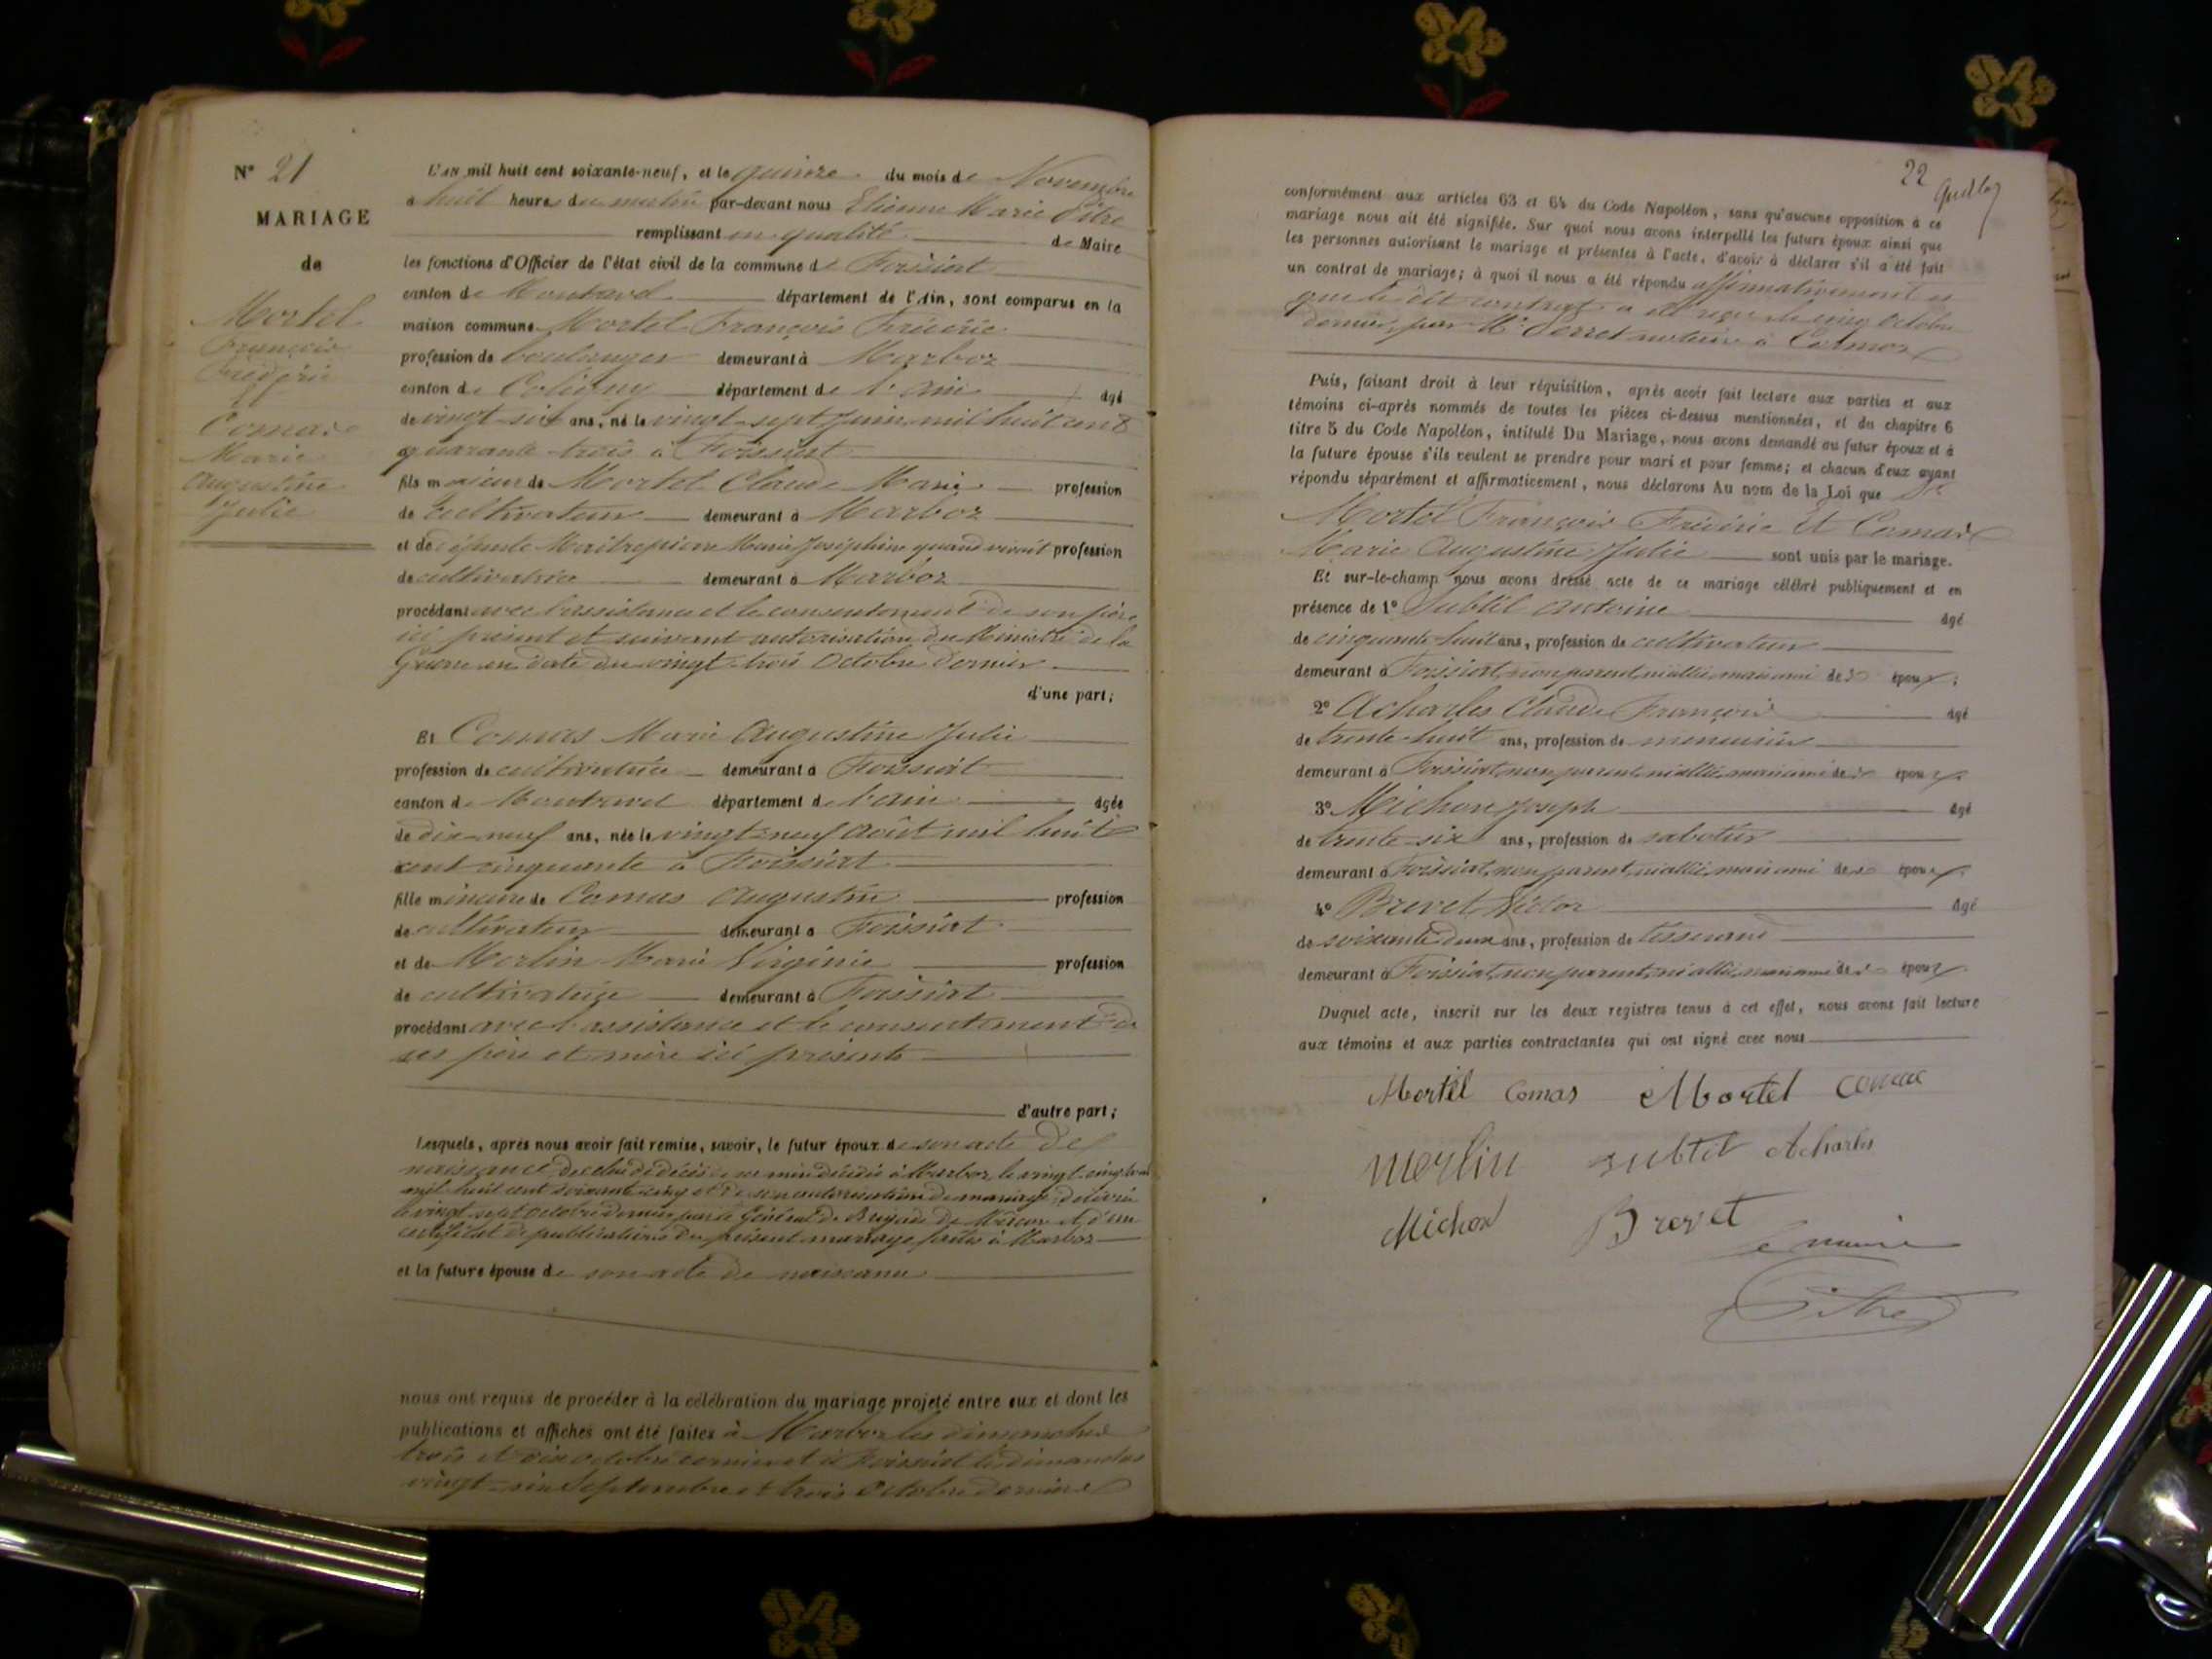 N° 21
MARIAGE
de
Mortel
François
Frédéric
et
Comas
Marie
Augustine
Julie
L'AN mil huit cent soixante-neuf, et le quinze du mois de Novembre
à huit heures du matin par-devant nous Etienne Marie Pitre
remplissant en qualité de Maire
les fonctions d'Officier de l'état civil de la commune de Foissiat
canton de Montrevel département de l'Ain, sont comparus en la
maison commune Mortel François Frédéric
profession de boulanger demeurant à Marboz
canton de Coligny département de l'ain âgé
de vingt-six ans, né le vingt-sept Juin mil huit cent
quarante trois à Foissiat
fils majeur de Mortel Claude Marie profession
de cultivateur demeurant à Marboz
et de défunte Maitrepierre Marie Joséphine quand vivait profession
de cultivatrice demeurant à Marboz
procédant avec l'assistance et le consentement de son père
ici présent et suivant autorisation du Ministre de la
Guerre en date du vingt-trois Octobre dernier
d'une part;
Et Comas Marie Augustine Julie
profession de cultivatrice demeurant à Foissiat
canton de Montrevel département de l'ain âgée
de dix-neuf ans, née le vingt-neuf Août mil huit
cent cinquante à Foissiat
fille mineure de Comas Augustin profession
de cultivateur demeurant à Foissiat
et de Merlin Marie Virginie profession
de cultivatrice demeurant à Foissiat
procédant avec l'assistance et le consentement de
ses père et mère ici présents
d'autre part;
Lesquels, après nous avoir fait remise, savoir, le futur époux de son acte de
naissance, de celui de décès de sa mère décédée à Marboz le vingt-cinq
mil huit cent soixante cinq et de son autorisation de mariage délivrée
le vingt-sept octobre dernier par le Général de Brigade de Mâcon et d'un
certificat de publications du présent mariage faites à Marboz
et la future épouse de son acte de naissance
nous ont requis de procéder à la célébration du mariage projeté entre eux et dont les
publications et affiches ont été faites à Marboz les dimanches
trois et dix octobre dernier et à Foissiat les dimanches
vingt-six Septembre et trois Octobre derniers
22
conformément aux articles 63 et 64 du Code Napoléon, sans qu'aucune opposition à ce
mariage nous ait été signifiée. Sur quoi nous avons interpellé les futurs époux ainsi que
les personnes autorisant le mariage et présentes à l'acte, d'avoir à déclarer s'il a été fait
un contrat de mariage; à quoi il nous a été répondu affirmativement et
que le dit contrat a été reçu le cinq Octobre
dernier, par Me Perret notaire à
Puis, faisant droit à leur réquisition, après avoir fait lecture aux parties et aux
témoins ci-après nommés de toutes les pièces ci-dessus mentionnées, et du chapitre 6
titre 5 du Code Napoléon, intitulé Du Mariage, nous avons demandé au futur époux et à
la future épouse s'ils veulent se prendre pour mari et pour femme; et chacun d'eux ayant
répondu séparément et affirmativement, nous déclarons Au nom de la Loi que
Mortel François Frédéric Et Comas
Marie Augustine Julie sont unis par le mariage.
Et sur-le-champ nous avons dressé acte de ce mariage célébré publiquement et en
présence de 1° Subtil Antoine âgé
de cinquante-huit ans, profession de cultivateur
demeurant à Foissiat, non parent, ni allié, mais ami des époux;
2° Acharles Claude François âgé
de trente-huit ans, profession de menuisier
demeurant à Foissiat, non parent, ni allié, mais ami des époux
3° Michon Joseph âgé
de trente-six ans, profession de sabotier
demeurant à Foissiat, non parent, ni allié, mais ami des époux
4° Brevet Victor âgé
de soixante deux ans, profession de tisserand
demeurant à Foissiat, non parent, ni allié, mais ami des époux
Duquel acte, inscrit sur les deux registres tenus à cet effet, nous avons fait lecture
aux témoins et aux parties contractantes qui ont signé avec nous
Mortel Comas Mortel Comas
Merlin Subtil Acharles
Michon Brevet
Le maire
Pitre